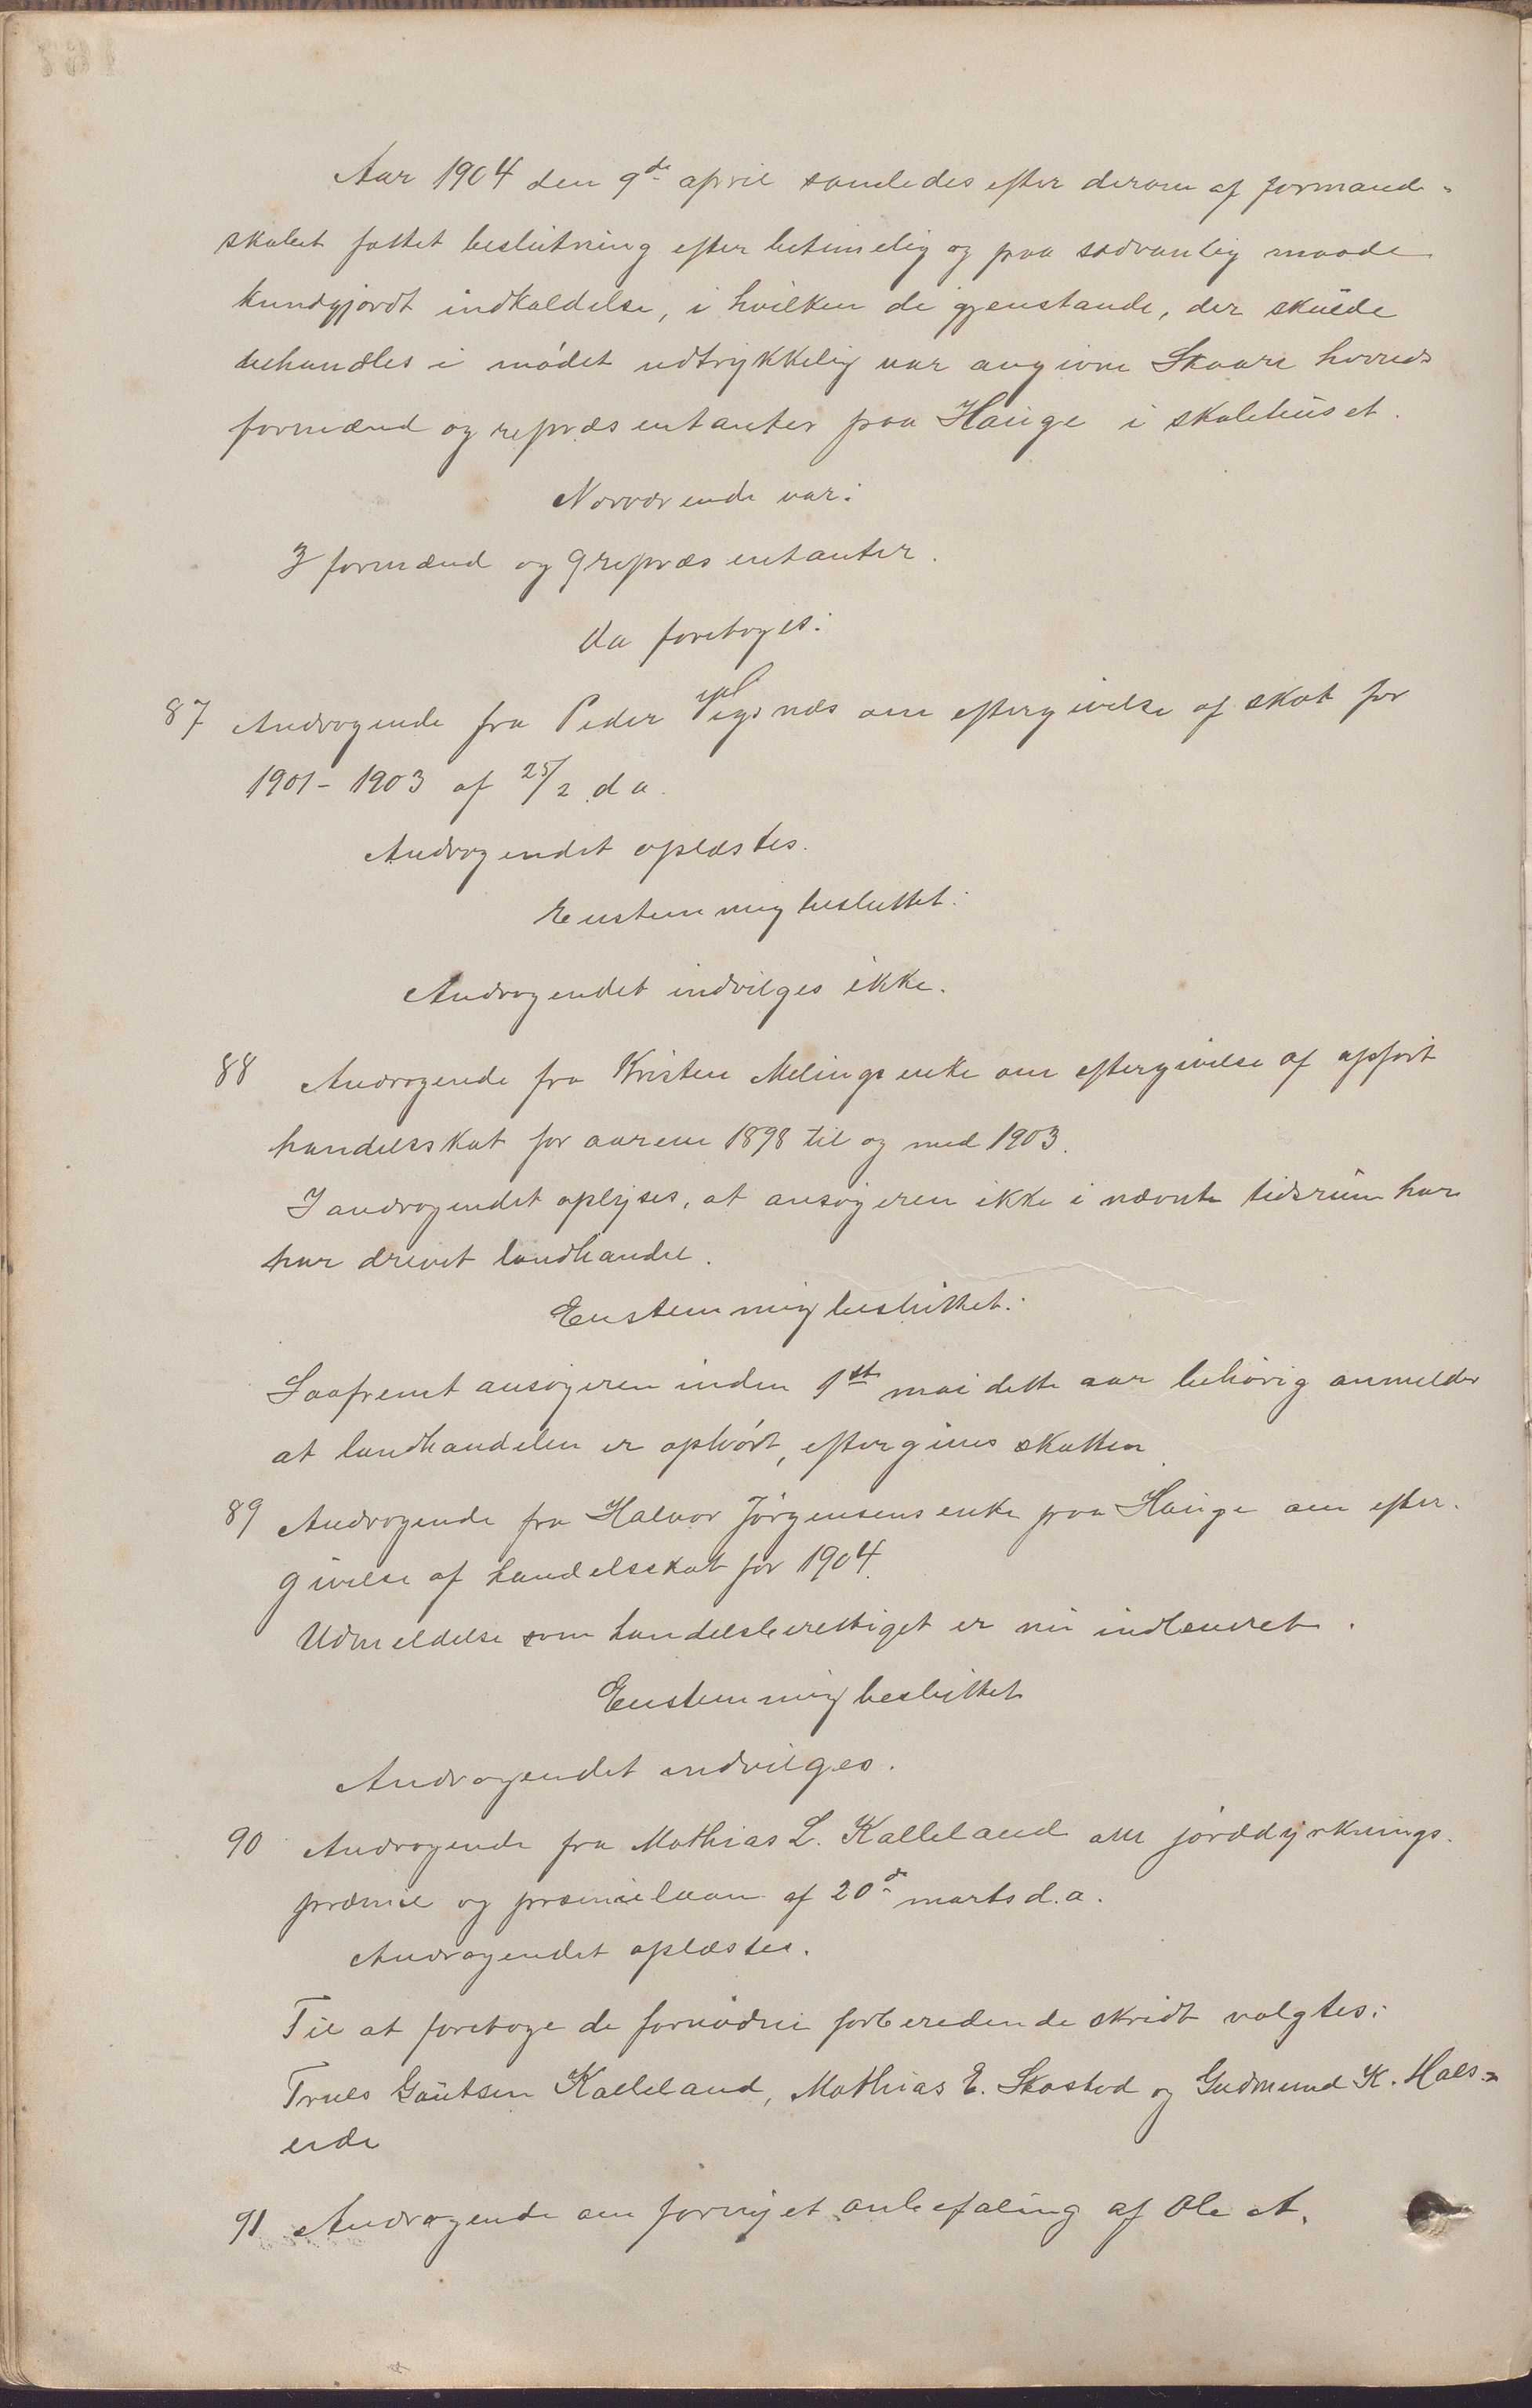 Aar 1904 den 9de april samledes efter derom af formand-
skabet fattet beslutning efter betimelig og paa sædvanlig maade
kundgjordt indkaldelse, i hvilken de gjenstande, der skulde
behandles i mødet udtrykkelig var angivne Skaare herreds
formænd og repræsentanter paa Hauge i skolehuset.
Nærværende var:
3 formænd og 9 repræsentanter.
Da foretoges:
87 Andragende fra Peder Vigsnæs om eftergivelse af skat for
1901 - 1903 af 25/2 d a.
Andragendet oplæstes.
Enstemmig besluttet:
Andragendet indvilges ikke.
88 Andragende fra Kristen Melings enke om eftergivelse af opført
handelsskat for aarene 1898 til og med 1903.
I andragendet oplyses, at ansøgeren ikke i nævnte tidsrum har
har drevet landhandel.
Enstemmig besluttet:
Saafremt ansøgeren inden 1ste mai dette aar behørig anmelder
at landhandelen er ophørt, eftergives skatten.
89 Andragende fra Halvor Jørgensens enke paa Hauge om efter-
givelse af handelsskat for 1904.
Udmeldelse som handelsberettiget er nu indleveret.
Enstemmig besluttet
Andragendet indvilges.
90 Andragende fra Mathias L. Kalleland om jorddyrknings-
præmie og præmielaan af 20de marts d.a.
Andragendet oplæstes.
Til at foretage de fornødne forberedende skridt valgtes:
Truls Gautsen Kalleland, Mathias E. Skastad og Gudmund K. Hals=
eide
91 Andragende om fornyet anbefaling af Ole A.